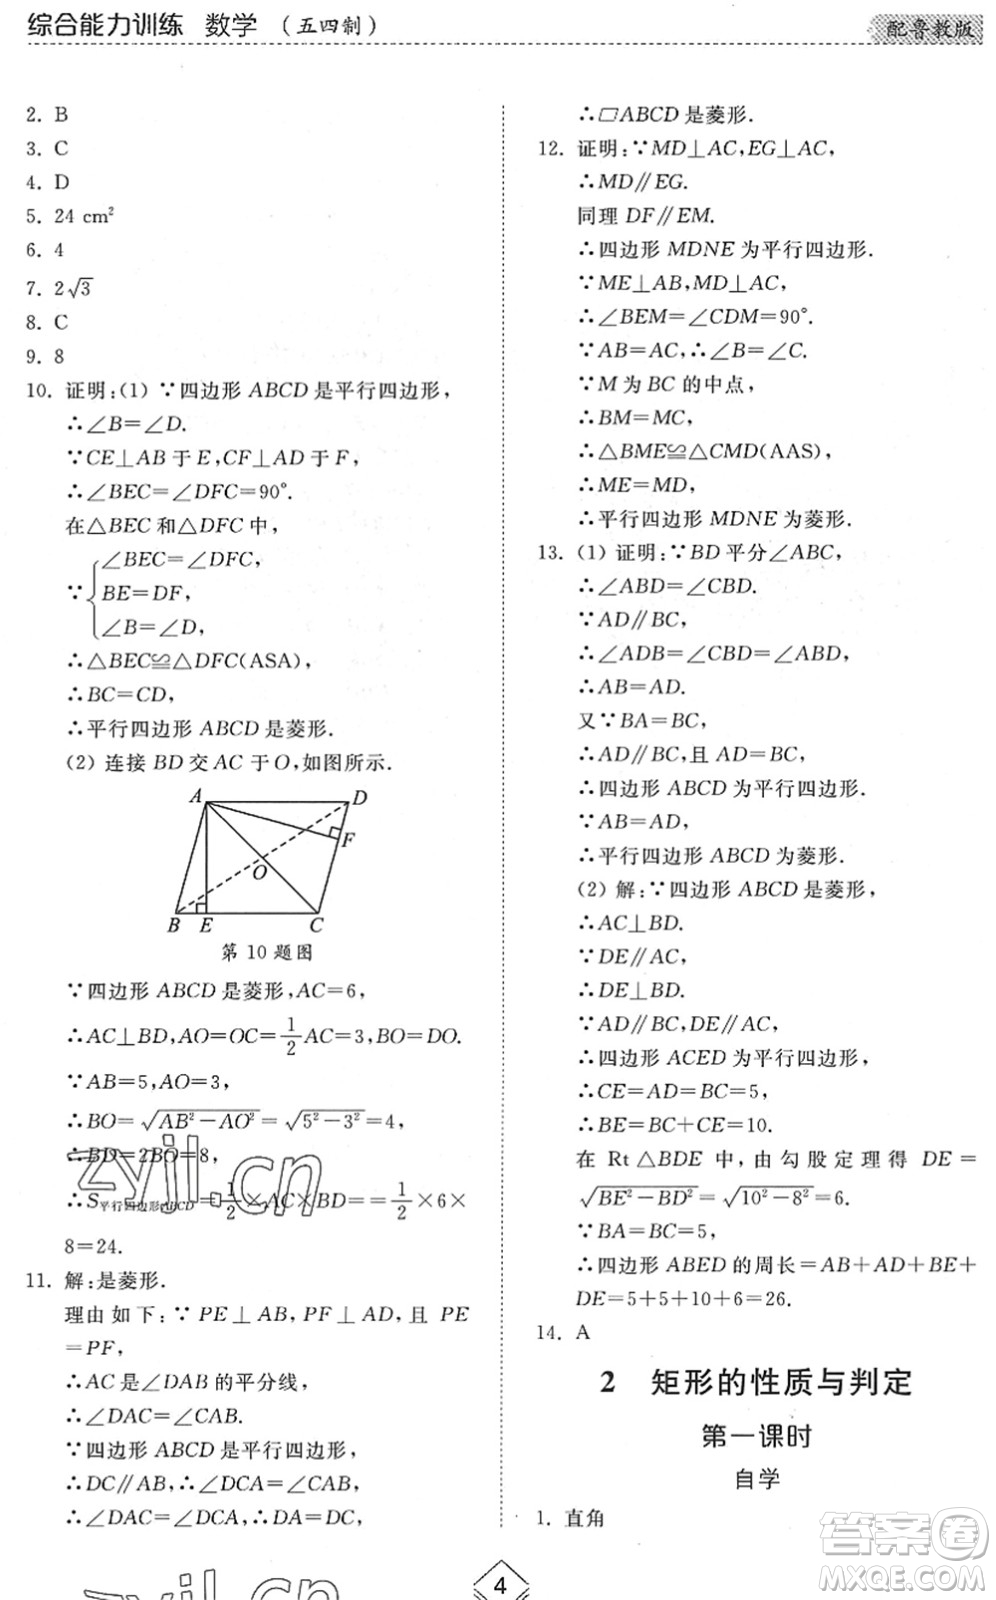 综合能力训练 数学 （五四制）
配鲁教版
2. B
3. C
4. D
5. 24 cm²
6. 4
7. 2√3
8. C
9. 8
10. 证明:(1) ∵四边形 ABCD 是平行四边形,
∴∠B=∠D.
∵CE⊥AB 于 E,CF⊥AD 于 F,
∴∠BEC=∠DFC=90°.
在△BEC 和△DFC 中,
∠BEC=∠DFC,
∵ BE=DF,
∠B=∠D,
∴△BEC≌△DFC(ASA),
∴BC=CD,
∴平行四边形 ABCD 是菱形.
(2) 连接 BD 交 AC 于 O,如图所示.
A D
F
O
B E C
第 10 题图
∵四边形 ABCD 是菱形,AC=6,
∴AC⊥BD,AO=OC=1/2AC=3,BO=DO.
∵AB=5,AO=3,
∴BO=√(AB²-AO²)=√(5²-3²)=4,
∴BD=2BO=8,
∴S平行四边形ABCD=1/2×AC×BD==1/2×6×
8=24.
11. 解:是菱形.
理由如下:∵PE⊥AB,PF⊥AD,且 PE
=PF,
∴AC 是∠DAB 的平分线,
∴∠DAC=∠CAB.
∵四边形 ABCD 是平行四边形,
∴DC∥AB,∴∠DCA=∠CAB,
∴∠DAC=∠DCA,∴DA=DC,
∴▱ABCD 是菱形.
12. 证明:∵MD⊥AC,EG⊥AC,
∴MD∥EG.
同理 DF∥EM.
∴四边形 MDNE 为平行四边形.
∵ME⊥AB,MD⊥AC,
∴∠BEM=∠CDM=90°.
∵AB=AC,∴∠B=∠C.
∵M 为 BC 的中点,
∴BM=MC,
∴△BME≌△CMD(AAS),
∴ME=MD,
∴平行四边形 MDNE 为菱形.
13. (1) 证明:∵BD 平分∠ABC,
∴∠ABD=∠CBD.
∵AD∥BC,
∴∠ADB=∠CBD=∠ABD,
∴AB=AD.
又∵BA=BC,
∴AD∥BC,且 AD=BC,
∴四边形 ABCD 为平行四边形.
∵AB=AD,
∴平行四边形 ABCD 为菱形.
(2) 解:∵四边形 ABCD 是菱形,
∴AC⊥BD.
∵DE∥AC,
∴DE⊥BD.
∵AD∥BC,DE∥AC,
∴四边形 ACED 为平行四边形,
∴CE=AD=BC=5,
∴BE=BC+CE=10.
在 Rt△BDE 中,由勾股定理得 DE=
√(BE²-BD²)=√(10²-8²)=6.
∵BA=BC=5,
∴四边形 ABED 的周长=AB+AD+BE+
DE=5+5+10+6=26.
14. A
2 矩形的性质与判定
第一课时
自学
1. 直角
4
zyjl.cn
zyjl.cn
答案圈
MXQE.COM